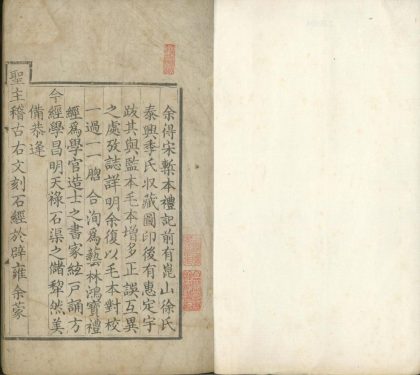 余得宋槧本禮記前有崑山徐氏
泰興季氏収藏圖印後有惠定宇
跋其與監本毛本增多正誤互異
之處攷誌詳明余復以毛本對校
一過一一脗合洵爲藝林鴻寶禮
經爲學官造士之書家絃戶誦方
今經學昌明天祿石渠之儲犂然美
備恭逢
聖主稽古右文刻石經於辟雍余家